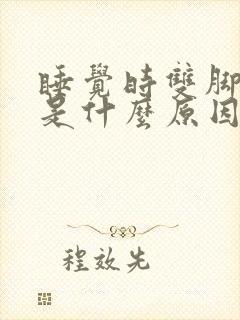 睡覺時雙腳
是什麼原因
程效先